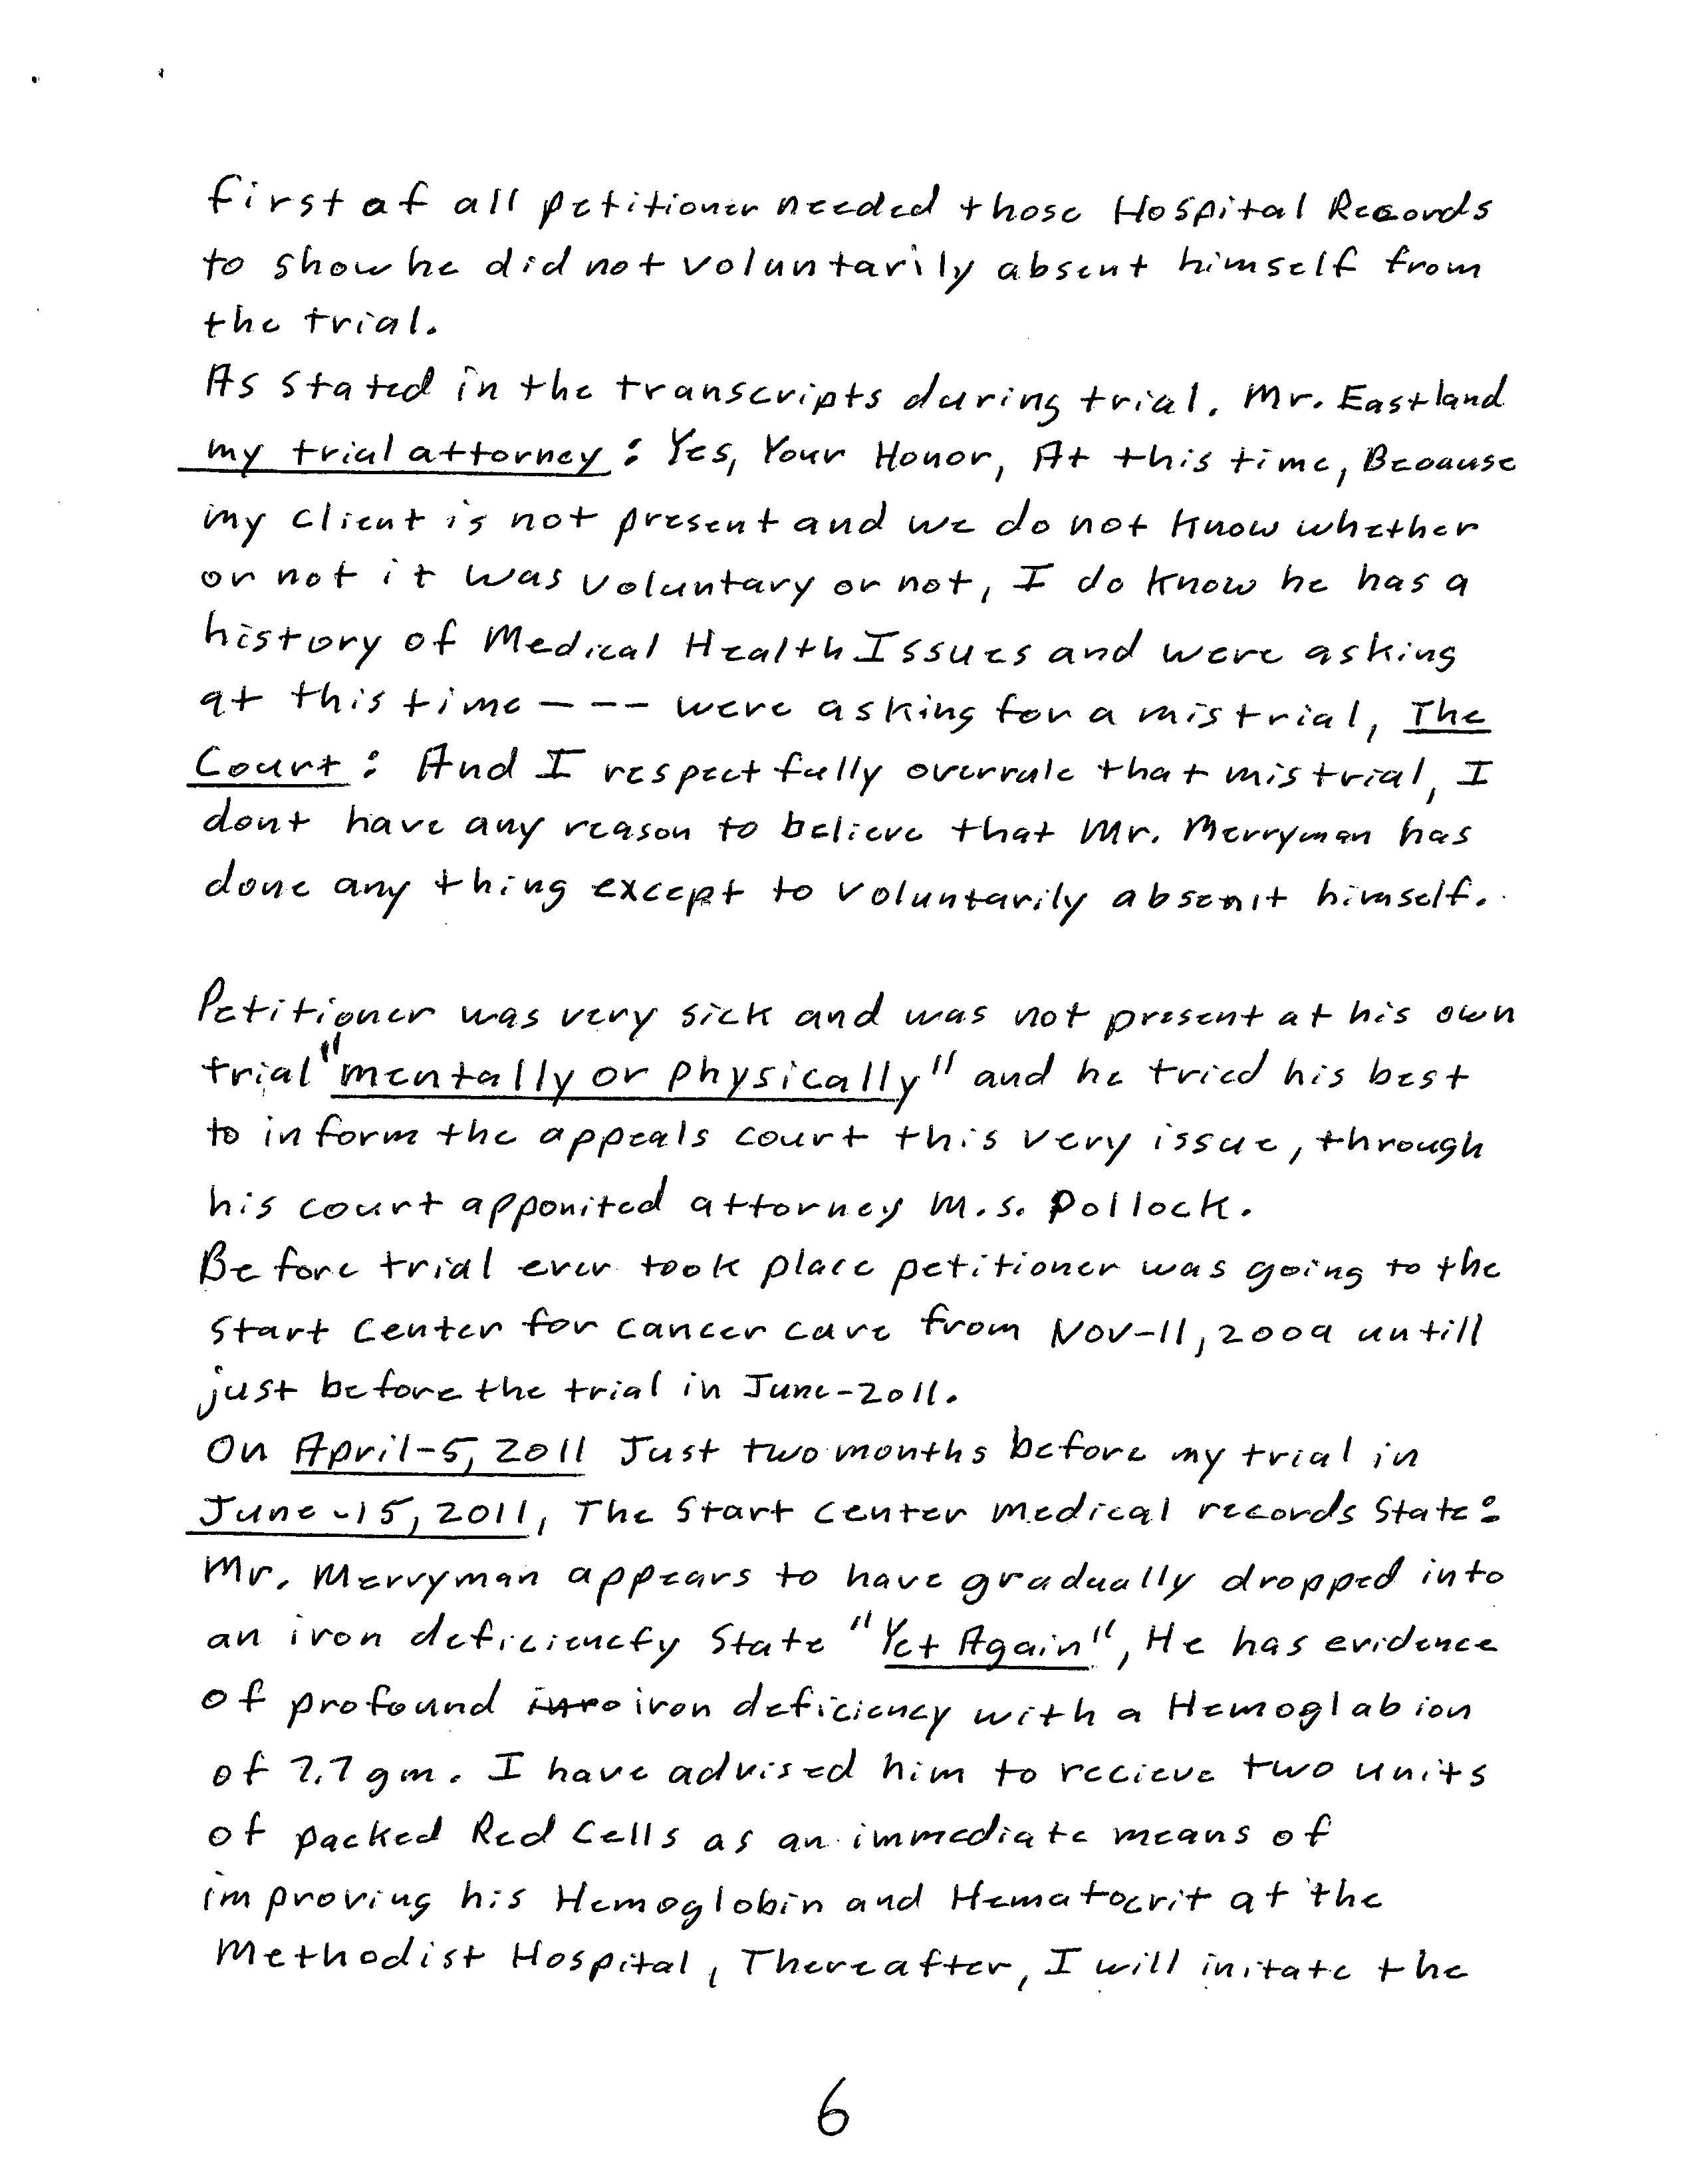 first of all petitioner needed those Hospital Records
to show he did not voluntarily absent himself from
the trial.
As stated in the transcripts during trial. Mr. Eastland
my trial attorney: Yes, Your Honor, At this time, Because
my client is not present and we do not know whether
or not it was voluntary or not, I do know he has a
history of Medical Health Issues and were asking
at this time --- were asking for a mistrial, The
Court: And I respectfully overrule that mistrial, I
dont have any reason to believe that Mr. Merryman has
done any thing except to voluntarily absenit himself.
Petitioner was very sick and was not present at his own
trial "mentally or physically" and he tried his best
to inform the appeals court this very issue, through
his court apponited attorney M.S. Pollock.
Before trial ever took place petitioner was going to the
Start Center for cancer care from Nov-11, 2009 untill
just before the trial in June-2011.
On April-5, 2011 Just two months before my trial in
June-15, 2011, The Start Center medical records State:
Mr. Merryman appears to have gradually dropped into
an iron deficiencfy State "Yet Again", He has evidence
of profound inro iron deficiency with a Hemoglabion
of 7.7 gm. I have advised him to recieve two units
of packed Red Cells as an immediate means of
improving his Hemoglobin and Hematocrit at the
Methodist Hospital, Thereafter, I will initate the
6